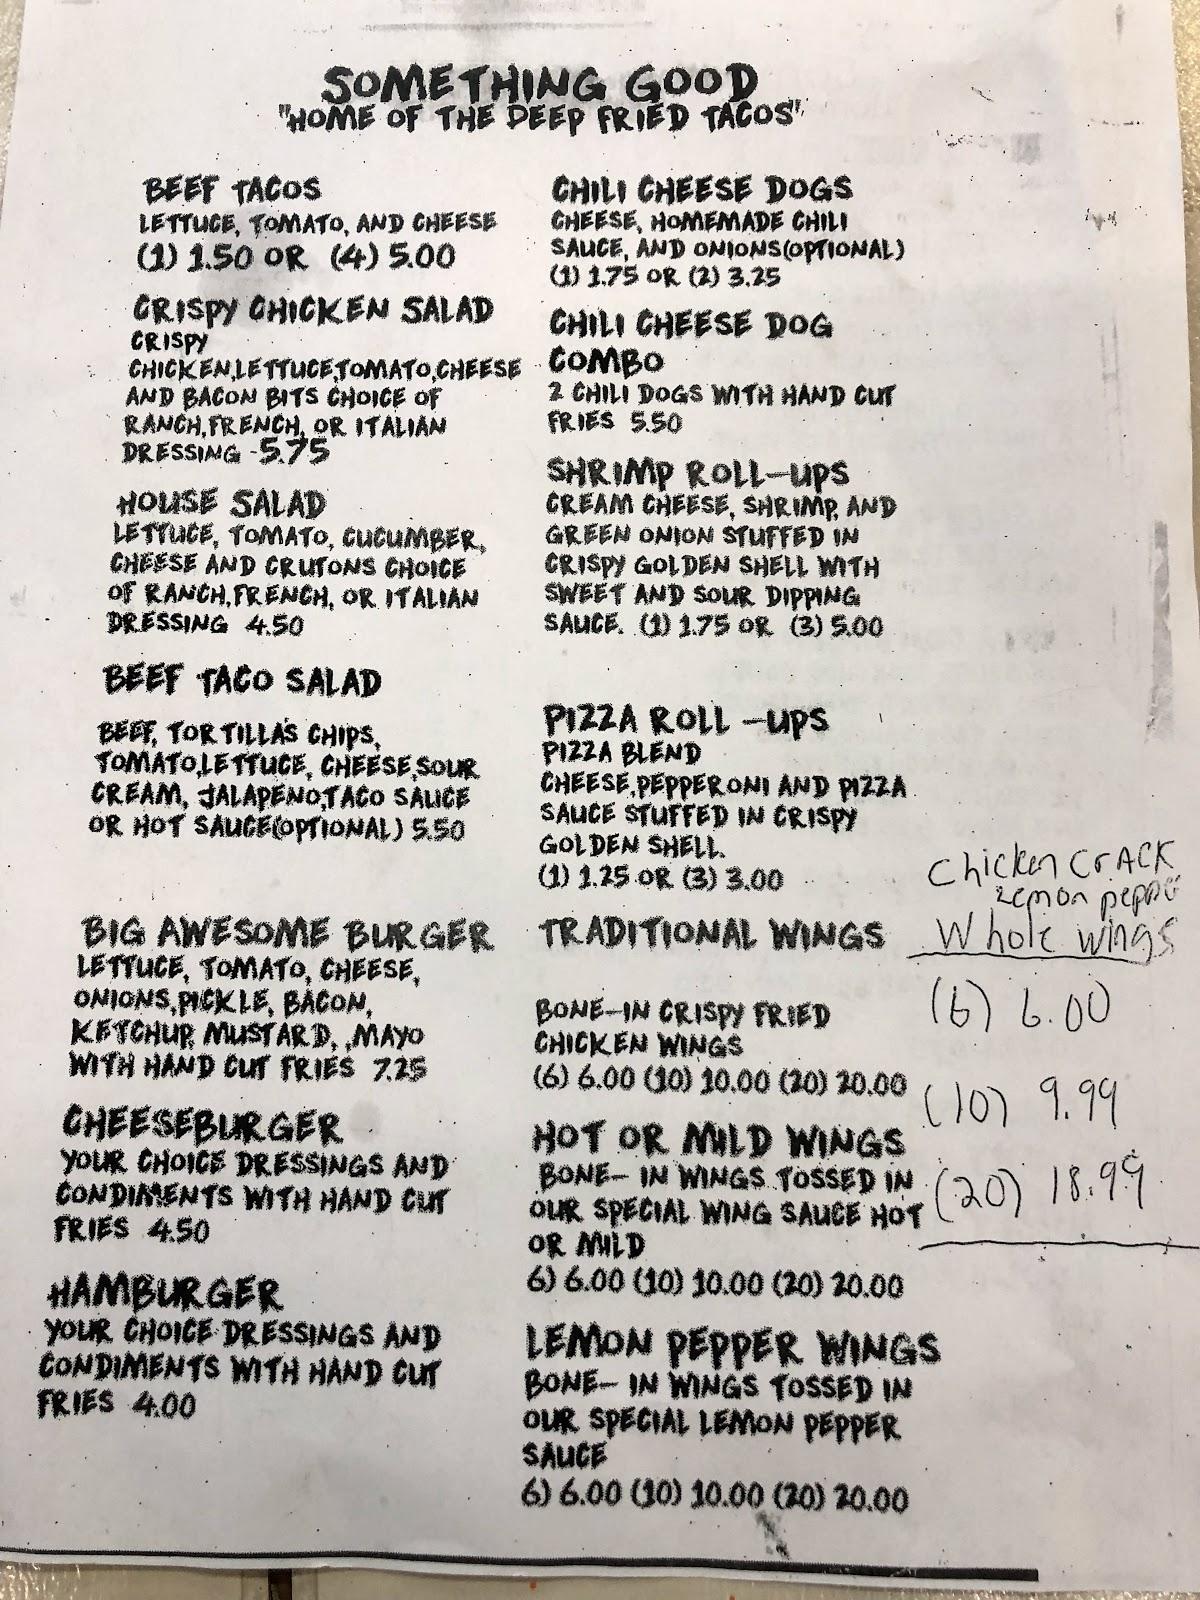 SOMETHING GOOD
"HOME OF THE DEEP FRIED TACOS"
BEEF TACOS
LETTUCE, TOMATO, AND CHEESE
(1) 1.50 OR (4) 5.00
CRISPY CHICKEN SALAD
CRISPY
CHICKEN,LETTUCE,TOMATO,CHEESE
AND BACON BITS CHOICE OF
RANCH,FRENCH, OR ITALIAN
DRESSING -5.75
HOUSE SALAD
LETTUCE, TOMATO, CUCUMBER,
CHEESE AND CRUTONS CHOICE
OF RANCH,FRENCH, OR ITALIAN
DRESSING 4.50
BEEF TACO SALAD
BEEF, TORTILLA'S CHIPS,
TOMATO,LETTUCE, CHEESE,SOUR
CREAM, JALAPENO,TACO SAUCE
OR HOT SAUCE(OPTIONAL) 5.50
BIG AWESOME BURGER
LETTUCE, TOMATO, CHEESE,
ONIONS,PICKLE, BACON,
KETCHUP, MUSTARD, ,MAYO
WITH HAND CUT FRIES 7.25
CHEESEBURGER
YOUR CHOICE DRESSINGS AND
CONDIMENTS WITH HAND CUT
FRIES 4.50
HAMBURGER
YOUR CHOICE DRESSINGS AND
CONDIMENTS WITH HAND CUT
FRIES 4.00
CHILI CHEESE DOGS
CHEESE, HOMEMADE CHILI
SAUCE, AND ONIONS(OPTIONAL)
(1) 1.75 OR (2) 3.25
CHILI CHEESE DOG
COMBO
2 CHILI DOGS WITH HAND CUT
FRIES 5.50
SHRIMP ROLL-UPS
CREAM CHEESE, SHRIMP, AND
GREEN ONION STUFFED IN
CRISPY GOLDEN SHELL WITH
SWEET AND SOUR DIPPING
SAUCE. (1) 1.75 OR (3) 5.00
PIZZA ROLL -UPS
PIZZA BLEND
CHEESE,PEPPERONI AND PIZZA
SAUCE STUFFED IN CRISPY
GOLDEN SHELL.
(1) 1.25 OR (3) 3.00
TRADITIONAL WINGS
BONE-IN CRISPY FRIED
CHICKEN WINGS
(6) 6.00 (10) 10.00 (20) 20.00
HOT OR MILD WINGS
BONE- IN WINGS TOSSED IN
OUR SPECIAL WING SAUCE HOT
OR MILD
6) 6.00 (10) 10.00 (20) 20.00
LEMON PEPPER WINGS
BONE- IN WINGS TOSSED IN
OUR SPECIAL LEMON PEPPER
SAUCE
6) 6.00 (10) 10.00 (20) 20.00
Chicken CrACK
Lemon pepper
Whole wings
(6) 6.00
(10) 9.99
(20) 18.99